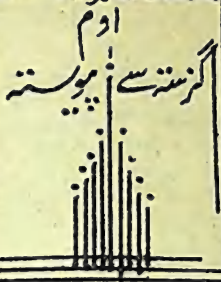 اوم
گزشتہ سے پیوستہ